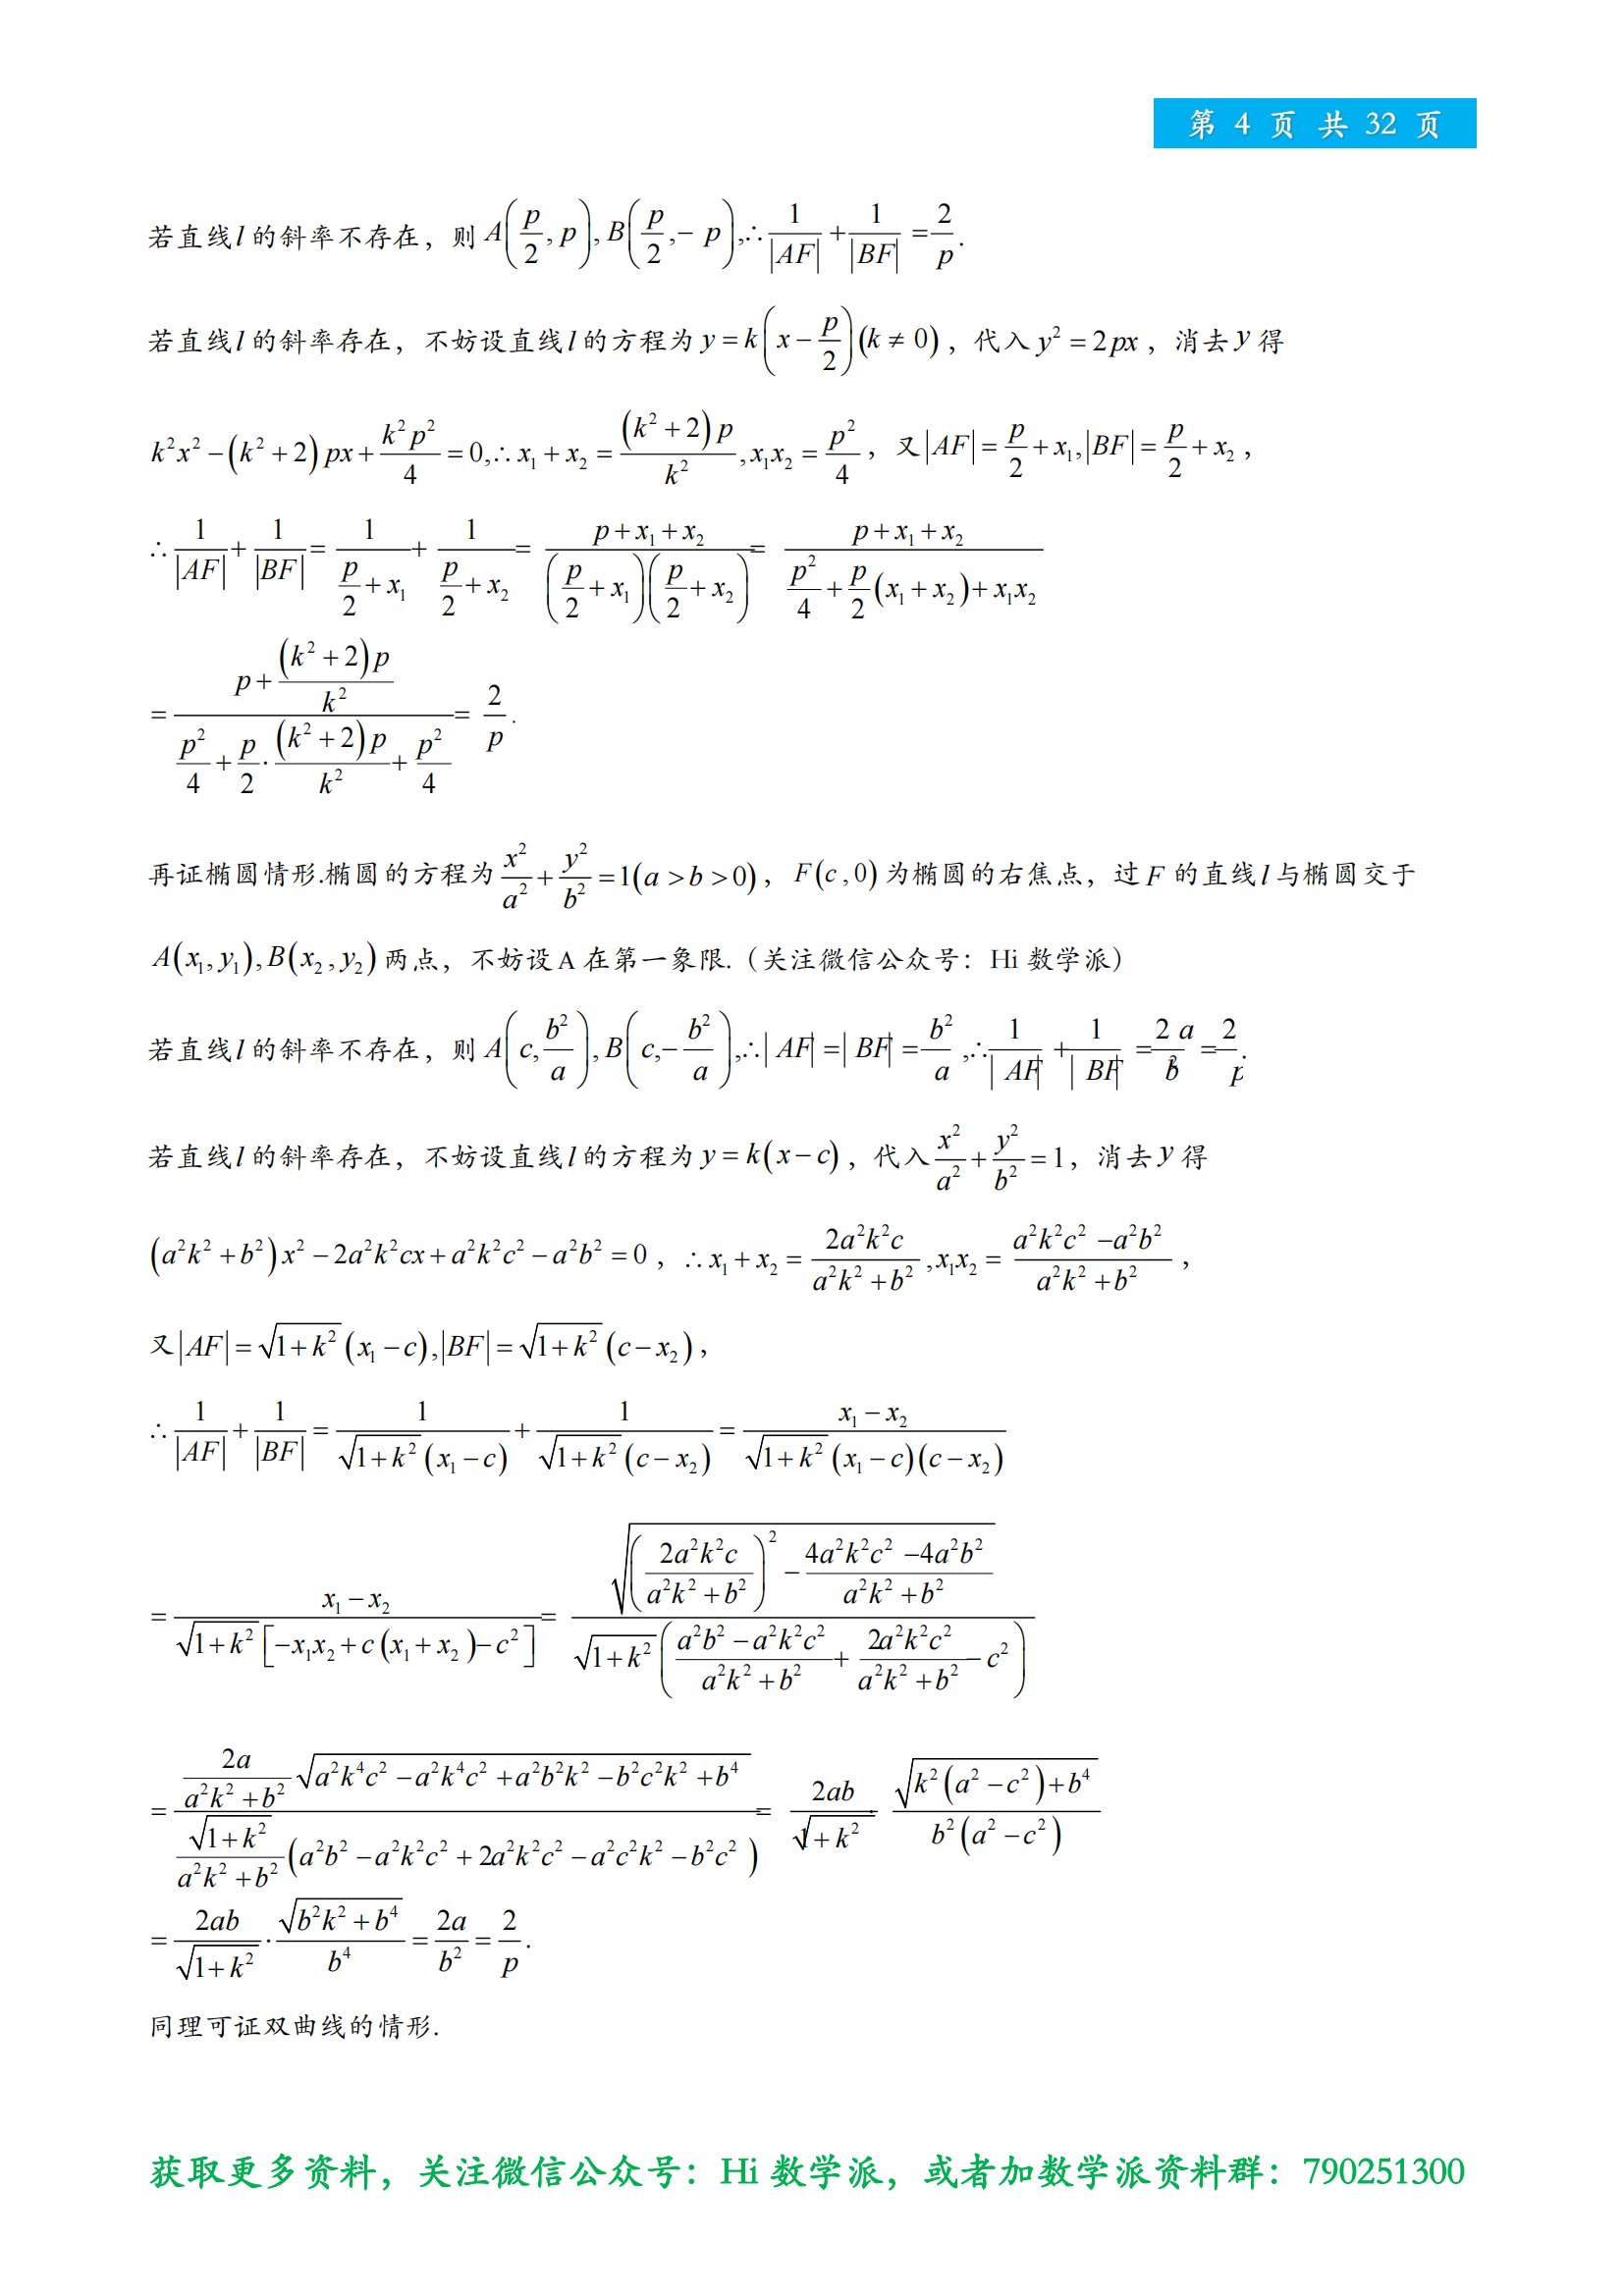 第 4 页 共 32 页
若直线 l 的斜率不存在，则 A(p/2, p), B(p/2, -p), ∴ 1/|AF| + 1/|BF| = 2/p.
若直线 l 的斜率存在，不妨设直线 l 的方程为 y = k(x - p/2)(k ≠ 0)，代入 y² = 2px，消去 y 得
k²x² - (k² + 2)px + k²p²/4 = 0, ∴ x₁ + x₂ = (k² + 2)p/k², x₁x₂ = p²/4，又 |AF| = p/2 + x₁, |BF| = p/2 + x₂，
∴ 1/|AF| + 1/|BF| = 1/(p/2 + x₁) + 1/(p/2 + x₂) = (p + x₁ + x₂)/((p/2 + x₁)(p/2 + x₂)) = (p + x₁ + x₂)/(p²/4 + p/2(x₁ + x₂) + x₁x₂)
= (p + (k² + 2)p/k²)/(p²/4 + p/2·(k² + 2)p/k² + p²/4) = 2/p.
再证椭圆情形.椭圆的方程为 x²/a² + y²/b² = 1(a > b > 0)，F(c, 0) 为椭圆的右焦点，过 F 的直线 l 与椭圆交于
A(x₁, y₁), B(x₂, y₂) 两点，不妨设 A 在第一象限.（关注微信公众号：Hi 数学派）
若直线 l 的斜率不存在，则 A(c, b²/a), B(c, -b²/a), ∴ |AF| = |BF| = b²/a, ∴ 1/|AF| + 1/|BF| = 2a/b² = 2/p.
若直线 l 的斜率存在，不妨设直线 l 的方程为 y = k(x - c)，代入 x²/a² + y²/b² = 1，消去 y 得
(a²k² + b²)x² - 2a²k²cx + a²k²c² - a²b² = 0，∴ x₁ + x₂ = 2a²k²c/(a²k² + b²), x₁x₂ = (a²k²c² - a²b²)/(a²k² + b²)，
又 |AF| = √(1 + k²)(x₁ - c), |BF| = √(1 + k²)(c - x₂)，
∴ 1/|AF| + 1/|BF| = 1/(√(1 + k²)(x₁ - c)) + 1/(√(1 + k²)(c - x₂)) = (x₁ - x₂)/(√(1 + k²)(x₁ - c)(c - x₂))
= (x₁ - x₂)/(√(1 + k²)[-x₁x₂ + c(x₁ + x₂) - c²]) = √((2a²k²c/(a²k² + b²))² - (4a²k²c² - 4a²b²)/(a²k² + b²))/(√(1 + k²)((a²b² - a²k²c²)/(a²k² + b²) + 2a²k²c²/(a²k² + b²) - c²))
= (2a/(a²k² + b²)√(a²k⁴c² - a²k⁴c² + a²b²k² - b²c²k² + b⁴))/(√(1 + k²)/(a²k² + b²)(a²b² - a²k²c² + 2a²k²c² - a²c²k² - b²c²)) = 2ab/√(1 + k²) · √(k²(a² - c²) + b⁴)/(b²(a² - c²))
= 2ab/√(1 + k²) · √(b²k² + b⁴)/b⁴ = 2a/b² = 2/p.
同理可证双曲线的情形.
获取更多资料，关注微信公众号：Hi 数学派，或者加数学派资料群：790251300